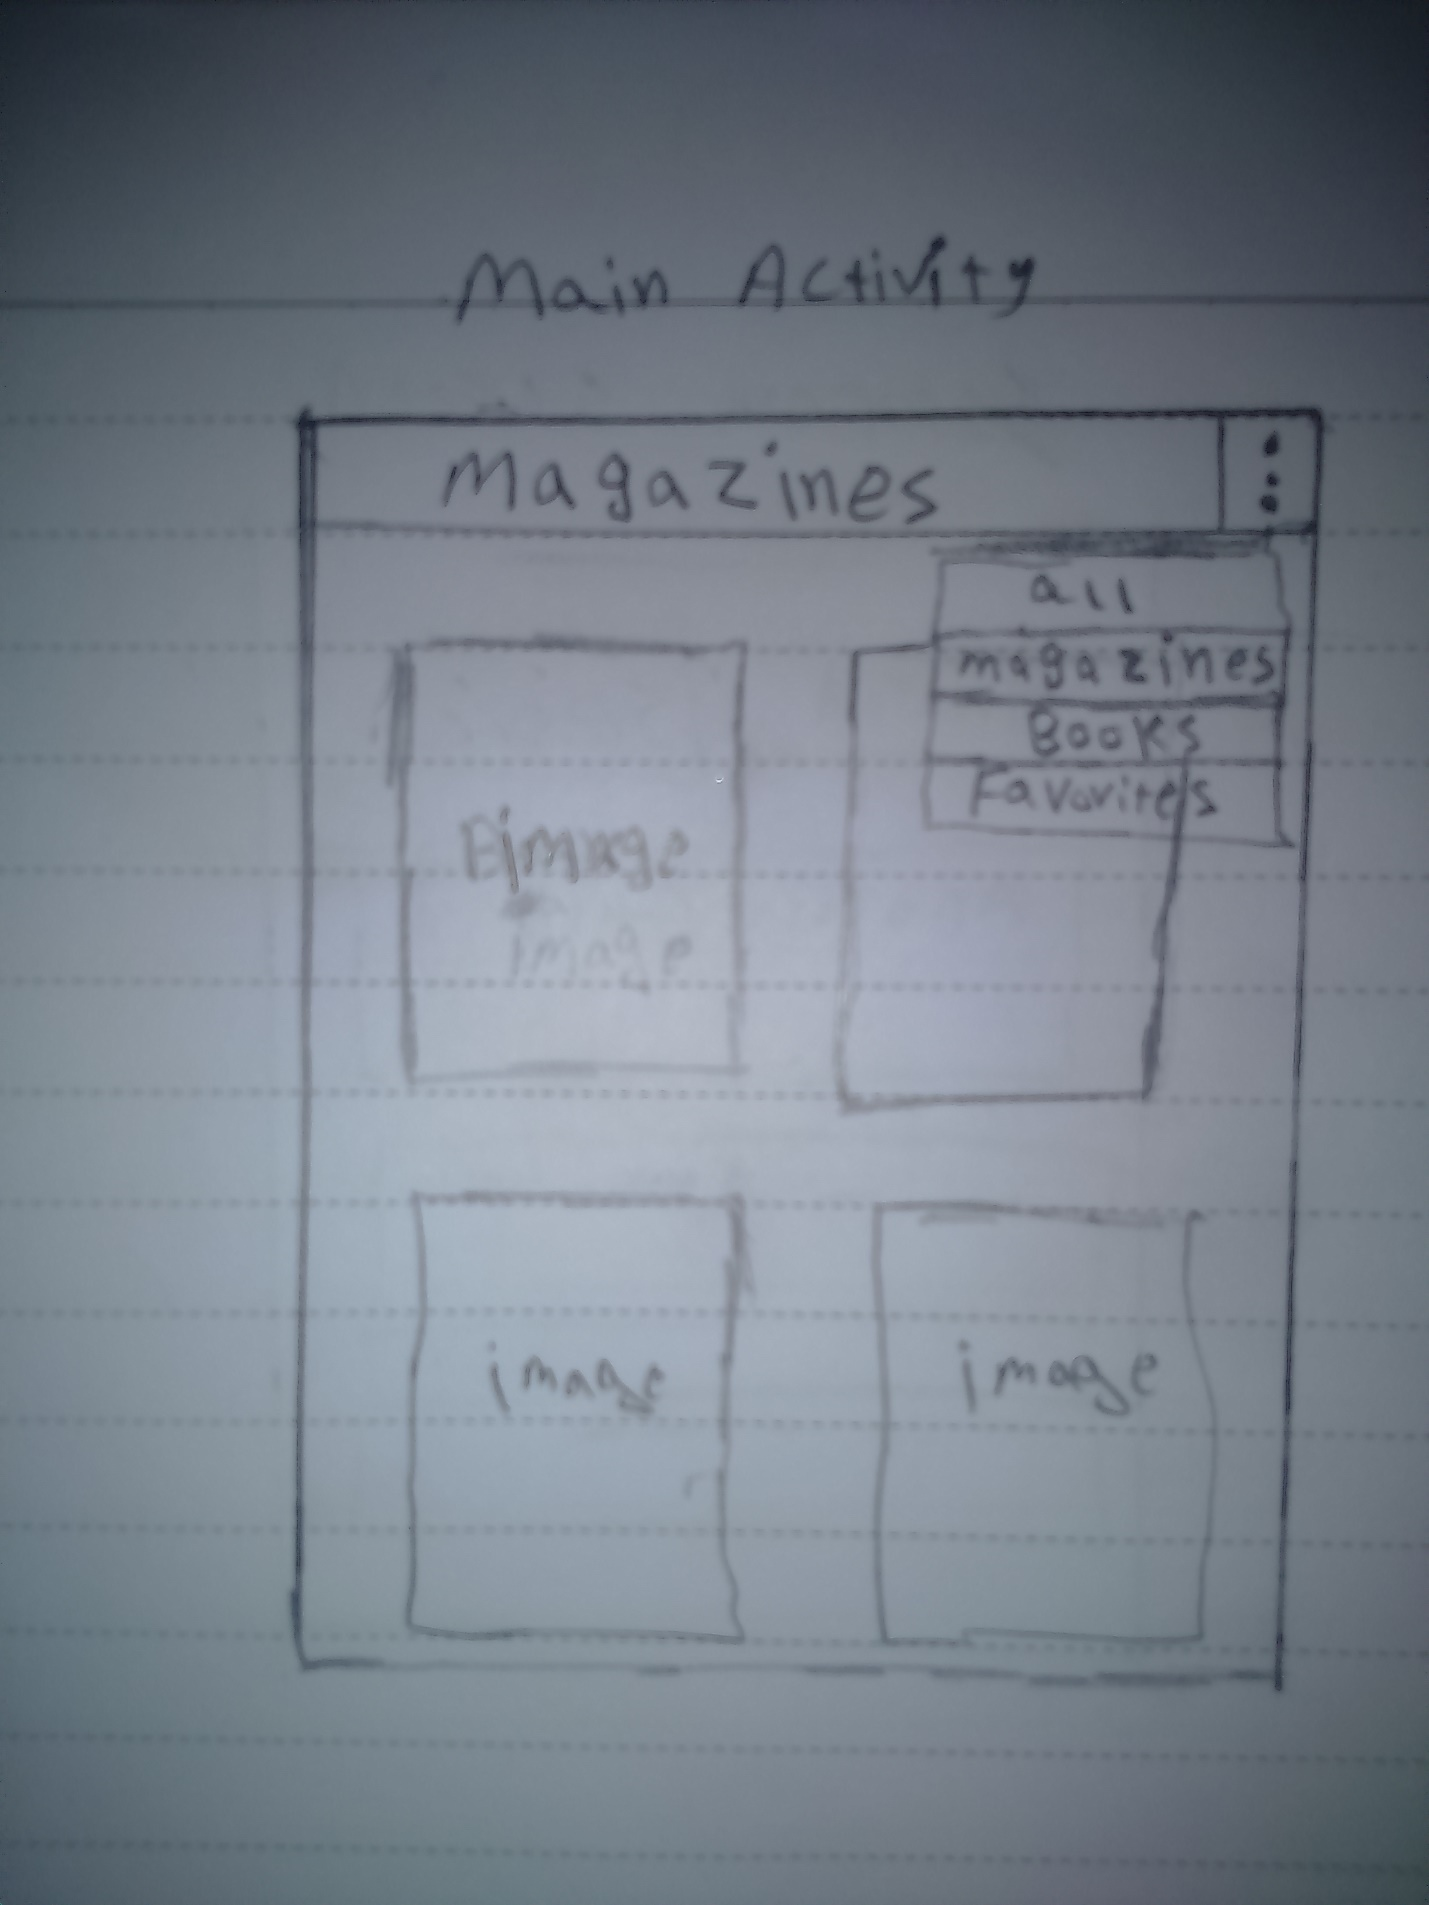 Main Activity
Magazines
all
magazines
Books
Favorites
image
image
image image